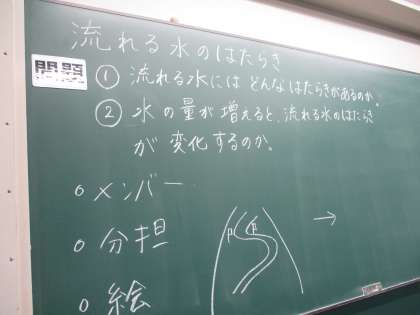 流れる水のはたらき
問題
① 流れる水には どんなはたらきがあるのか。
② 水の量が増えると、流れる水のはたらき
が変化するのか。
○ メンバー
○ 分担
○ 絵
→